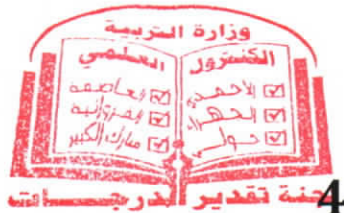 وزارة التربية
الكنترول العلمي
☑ الأحمدي ☑ العاصمة
☑ الجهراء ☑ الفروانية
☑ حولي ☑ مبارك الكبير
لجنة تقدير الدرجات
4